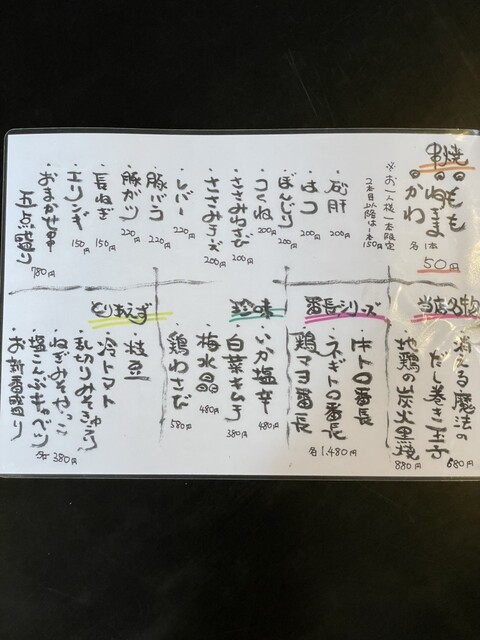 串焼
もも
ねぎま
かわ
各1本
50円
※お一人様一本限定
2本目以降は1本
150円
・砂肝 200円
・はつ 200円
・ぼんじり 200円
・つくね 200円
・ささみわさび 200円
・ささみチーズ 200円
・レバー 220円
・豚バラ 220円
・豚ガリ 220円
・長ねぎ 150円
・エリンギ 150円
・おまかせ串
五点盛り 780円
当店名物
消える魔法の
だし巻き玉子 680円
地鶏の炭火黒焼 880円
番長シリーズ
・牛トロ番長
・ネギトロ番長
・鶏マヨ番長
各1,480円
珍味
・いか塩辛 480円
・白菜キムチ 380円
・梅水晶 480円
・鶏わさび 580円
とりあえず
・枝豆
・冷トマト
・乱切りみそきゅうり
・ねぎみそやっこ
・塩こんぶキャベツ
・お新香盛り
各380円